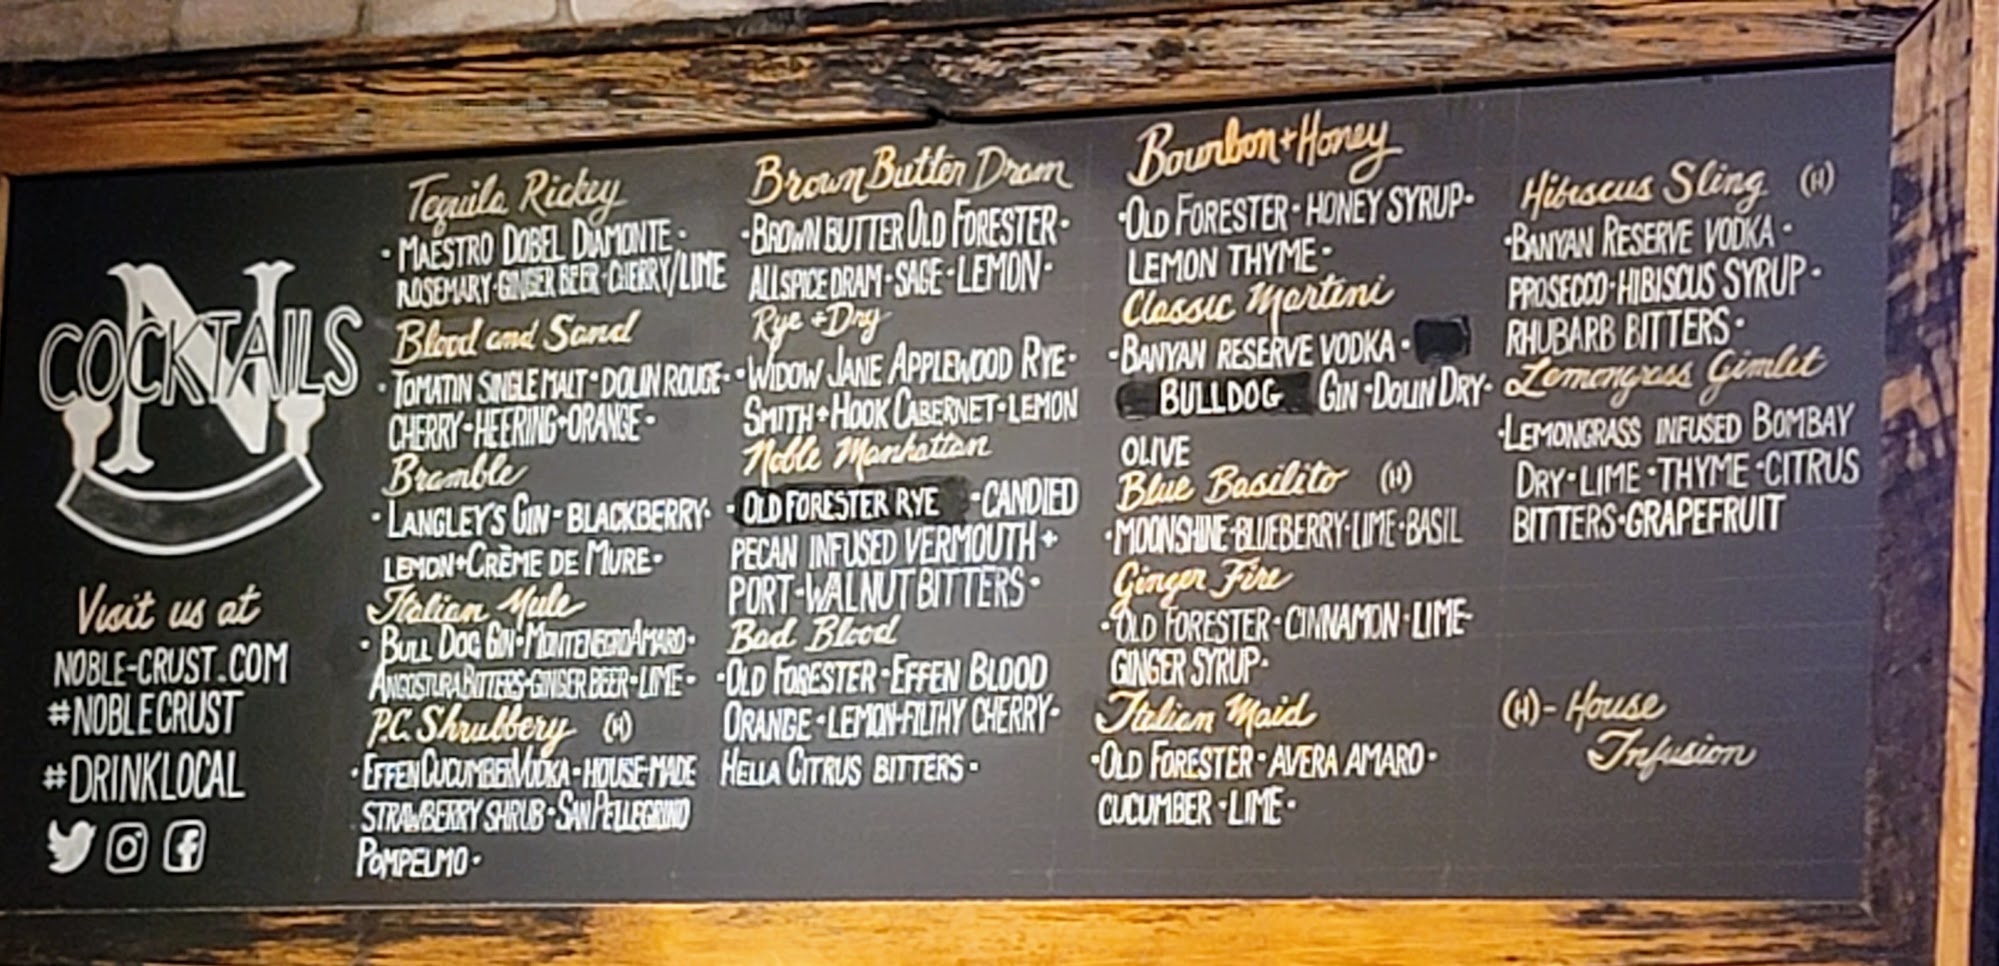 N
COCKTAILS
Visit us at
NOBLE-CRUST.COM
#NOBLECRUST
#DRINKLOCAL
Tequila Rickey
· MAESTRO DOBEL DIAMONTE ·
ROSEMARY · GINGER BEER · CHERRY/LIME
Blood and Sand
· TOMATIN SINGLE MALT · DOLIN ROUGE ·
CHERRY - HEERING + ORANGE ·
Bramble
· LANGLEY'S GIN - BLACKBERRY ·
LEMON + CRÈME DE MURE ·
Italian Mule
· BULL DOG GIN · MONTENEGRO AMARO ·
ANGOSTURA BITTERS · GINGER BEER · LIME ·
P.C. Shrubbery (H)
· EFFEN CUCUMBER VODKA · HOUSE-MADE
STRAWBERRY SHRUB · SAN PELLEGRINO
POMPELMO ·
Brown Butter Dram
· BROWN BUTTER OLD FORESTER ·
ALLSPICE DRAM · SAGE · LEMON ·
Rye + Dry
· WIDOW JANE APPLEWOOD RYE ·
SMITH + HOOK CABERNET · LEMON
Noble Manhattan
· OLD FORESTER RYE · CANDIED
PECAN INFUSED VERMOUTH +
PORT - WALNUT BITTERS ·
Bad Blood
· OLD FORESTER · EFFEN BLOOD
ORANGE · LEMON + FILTHY CHERRY ·
HELLA CITRUS BITTERS ·
Bourbon + Honey
· OLD FORESTER · HONEY SYRUP ·
LEMON THYME ·
Classic Martini
· BANYAN RESERVE VODKA ·
BULLDOG GIN · DOLIN DRY ·
OLIVE
Blue Basilito (H)
· MOONSHINE · BLUEBERRY · LIME · BASIL
Ginger Fire
· OLD FORESTER · CINNAMON · LIME ·
GINGER SYRUP ·
Italian Maid
· OLD FORESTER · AVERA AMARO ·
CUCUMBER · LIME ·
Hibiscus Sling (H)
· BANYAN RESERVE VODKA ·
PROSECCO · HIBISCUS SYRUP ·
RHUBARB BITTERS ·
Lemongrass Gimlet
· LEMONGRASS INFUSED BOMBAY
DRY · LIME · THYME · CITRUS
BITTERS · GRAPEFRUIT
(H) - House
Infusion